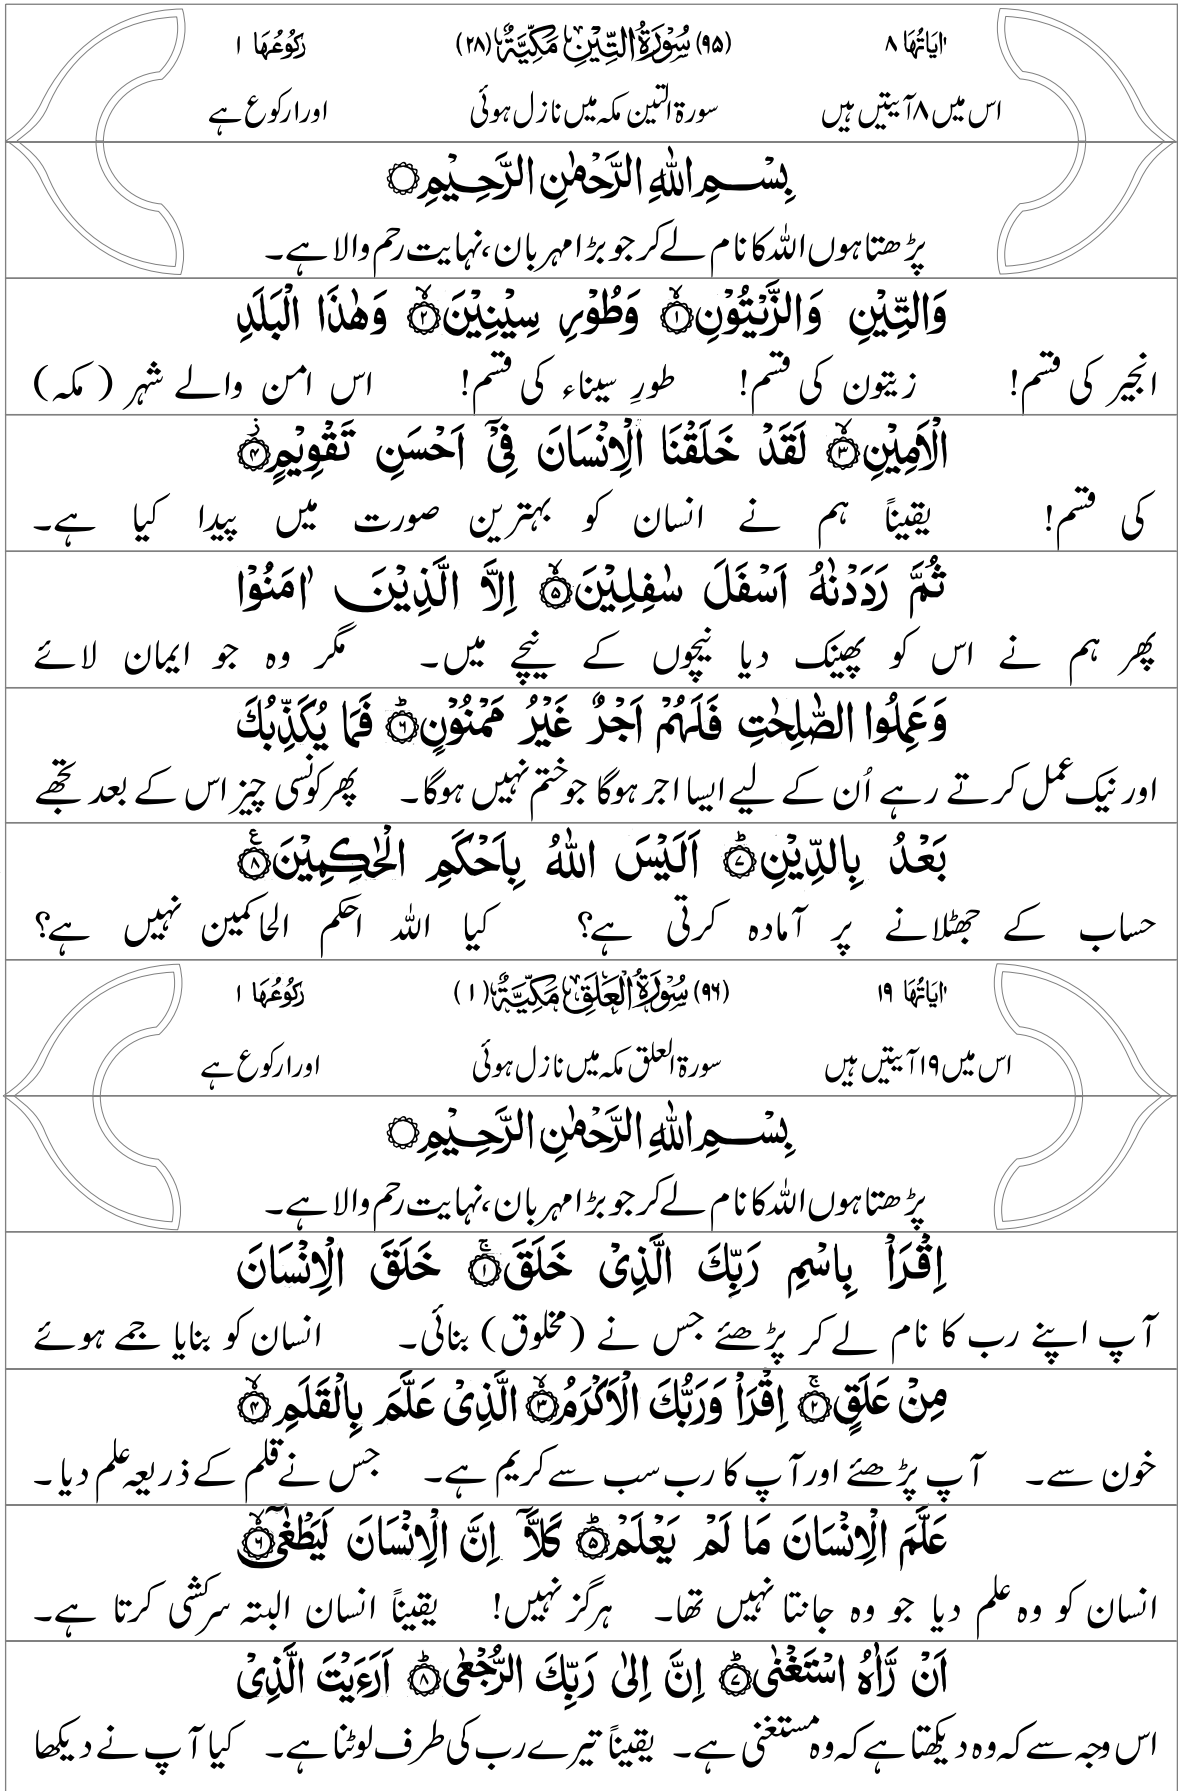 اٰیَاتُهَا ۸ (۹۵) سُوْرَةُ التِّیْنِ مَكِّیَّةٌ (۲۸) رُكُوْعُهَا ۱
اس میں ۸ آیتیں ہیں سورۃ التین مکہ میں نازل ہوئی اور ۱ رکوع ہے
بِسْمِ اللّٰهِ الرَّحْمٰنِ الرَّحِیْمِ
پڑھتا ہوں اللہ کا نام لے کر جو بڑا مہربان، نہایت رحم والا ہے۔
وَالتِّیْنِ وَالزَّیْتُوْنِ ۱ۙ وَطُوْرِ سِیْنِیْنَ ۲ۙ وَهٰذَا الْبَلَدِ
انجیر کی قسم! زیتون کی قسم! طورِ سیناء کی قسم! اس امن والے شہر (مکہ)
الْاَمِیْنِ ۳ۙ لَقَدْ خَلَقْنَا الْاِنْسَانَ فِیْۤ اَحْسَنِ تَقْوِیْمٍ ۴ؗ
کی قسم! یقیناً ہم نے انسان کو بہترین صورت میں پیدا کیا ہے۔
ثُمَّ رَدَدْنٰهُ اَسْفَلَ سٰفِلِیْنَ ۵ۙ اِلَّا الَّذِیْنَ اٰمَنُوْا
پھر ہم نے اس کو پھینک دیا نیچوں کے نیچے میں۔ مگر وہ جو ایمان لائے
وَعَمِلُوا الصّٰلِحٰتِ فَلَهُمْ اَجْرٌ غَیْرُ مَمْنُوْنٍ ۶ؕ فَمَا یُكَذِّبُكَ
اور نیک عمل کرتے رہے اُن کے لیے ایسا اجر ہوگا جو ختم نہیں ہوگا۔ پھر کونسی چیز اس کے بعد تجھے
بَعْدُ بِالدِّیْنِ ۷ؕ اَلَیْسَ اللّٰهُ بِاَحْكَمِ الْحٰكِمِیْنَ ۸ع
حساب کے جھٹلانے پر آمادہ کرتی ہے؟ کیا اللہ احکم الحاکمین نہیں ہے؟
اٰیَاتُهَا ۱۹ (۹۶) سُوْرَةُ الْعَلَقِ مَكِّیَّةٌ (۱) رُكُوْعُهَا ۱
اس میں ۱۹ آیتیں ہیں سورۃ العلق مکہ میں نازل ہوئی اور ۱ رکوع ہے
بِسْمِ اللّٰهِ الرَّحْمٰنِ الرَّحِیْمِ
پڑھتا ہوں اللہ کا نام لے کر جو بڑا مہربان، نہایت رحم والا ہے۔
اِقْرَاْ بِاسْمِ رَبِّكَ الَّذِیْ خَلَقَ ۱ۚ خَلَقَ الْاِنْسَانَ
آپ اپنے رب کا نام لے کر پڑھئے جس نے (مخلوق) بنائی۔ انسان کو بنایا جمے ہوئے
مِنْ عَلَقٍ ۲ۚ اِقْرَاْ وَرَبُّكَ الْاَكْرَمُ ۳ۙ الَّذِیْ عَلَّمَ بِالْقَلَمِ ۴ۙ
خون سے۔ آپ پڑھئے اور آپ کا رب سب سے کریم ہے۔ جس نے قلم کے ذریعہ علم دیا۔
عَلَّمَ الْاِنْسَانَ مَا لَمْ یَعْلَمْ ۵ؕ كَلَّاۤ اِنَّ الْاِنْسَانَ لَیَطْغٰۤی ۶ۙ
انسان کو وہ علم دیا جو وہ جانتا نہیں تھا۔ ہرگز نہیں! یقیناً انسان البتہ سرکشی کرتا ہے۔
اَنْ رَّاٰهُ اسْتَغْنٰی ۷ؕ اِنَّ اِلٰی رَبِّكَ الرُّجْعٰی ۸ؕ اَرَءَیْتَ الَّذِیْ
اس وجہ سے کہ وہ دیکھتا ہے کہ وہ مستغنی ہے۔ یقیناً تیرے رب کی طرف لوٹنا ہے۔ کیا آپ نے دیکھا